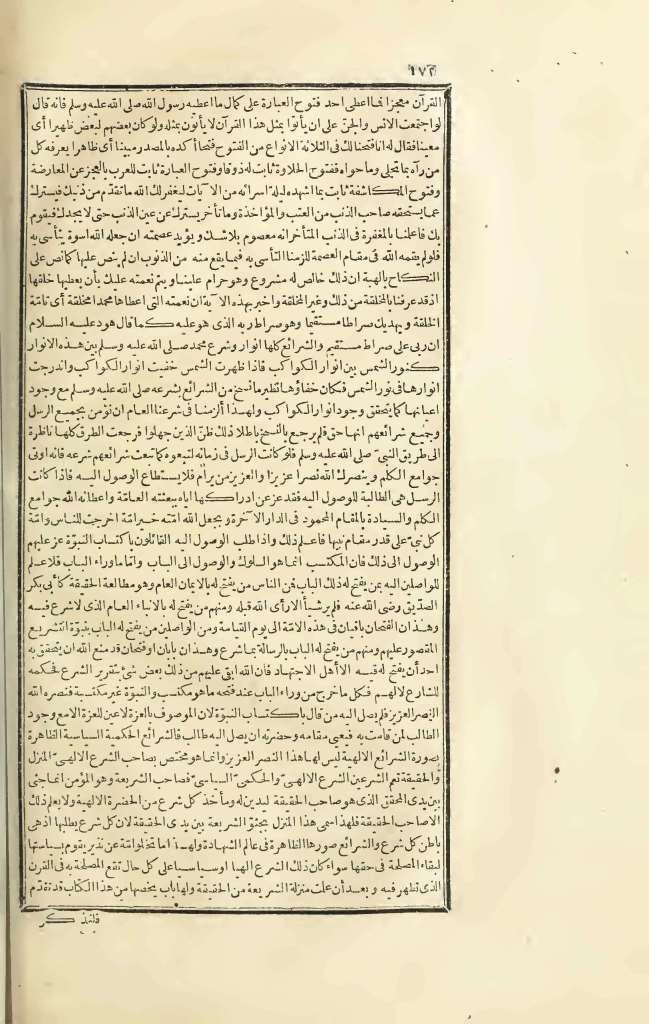 ١٧٢
القرآن معجزا فما اعطى احد فتوح العبارة على كمال ما اعطيه رسول الله صلى الله عليه وسلم فانه قال
لو اجتمعت الانس والجن على ان يأتوا بمثل هذا القرآن لا يأتون بمثله ولو كان بعضهم لبعض ظهيرا أى
معينا فقال له انا فتحنا لك فى الثلاثة الانواع من الفتوح فتحا أكده بالمصدر مبينا أى ظاهرا يعرفه كل
من رآه بما تجلى وما حواه ففتوح الحلاوة ثابت له ذوقا وفتوح العبارة ثابت للعرب بالعجز عن المعارضة
وفتوح المكاشفة ثابت بما اشهده ليلة اسرائه من الآيات ليغفر لك الله ما تقدم من ذنبك فيسترك
عما يستحقه صاحب الذنب من العتب والمؤاخذة وما تأخر يسترك عن عين الذنب حتى لا يجدك فيقوم
بك فاعلمنا بالمغفرة فى الذنب المتأخر انه معصوم بلا شك ويؤيد عصمته ان جعله الله اسوة يتأسى به
فلو لم يقمه الله فى مقام العصمة للزمنا التأسى به فيما يقع منه من الذنوب ان لم ينص عليها كما نص على
النكاح بالهبة ان ذلك خالص له مشروع وهو حرام علينا ويتم نعمته عليك بأن يعطيها خلقها
اذ قد عرفنا بالمخلقة من ذلك وغير المخلقة واخبر بهذه الآية ان نعمته التى اعطاها محمدا مخلقة أى تامة
الخلقة ويهديك صراطا مستقيما وهو صراط ربه الذى هو عليه كما قال هود عليه السلام
ان ربى على صراط مستقيم والشرائع كلها انوار وشرع محمد صلى الله عليه وسلم بين هذه الانوار
كنور الشمس بين انوار الكواكب فاذا ظهرت الشمس خفيت انوار الكواكب واندرجت
انوارها فى نور الشمس فكان خفاؤها نظير ما نسخ من الشرائع بشرعه صلى الله عليه وسلم مع وجود
اعيانها كما يتحقق وجود انوار الكواكب ولهذا ألزمنا فى شرعنا العام ان نؤمن بجميع الرسل
وجميع شرائعهم انها حق فلم يرجع بالنسخ باطلا ذلك ظن الذين جهلوا فرجعت الطرق كلها ناظرة
الى طريق النبى صلى الله عليه وسلم فلو كانت الرسل فى زمانه لتبعوه كما تبعت شرائعهم شرعه فانه اوتى
جوامع الكلم وينصرك الله نصرا عزيزا والعزيز من يرام فلا يستطاع الوصول اليه فاذا كانت
الرسل هى الطالبة للوصول اليه فقد عز عن ادراكها اياه ببعثته العامة واعطائه الله جوامع
الكلم والسيادة بالمقام المحمود فى الدار الآخرة ويجعل الله امته خير امة اخرجت للناس وامة
كل نبى على قدر مقام نبيها فاعلم ذلك واذا طلب الوصول اليه القائلون باكتساب النبوة عز عليهم
الوصول الى ذلك فان المكتسب انما هو السلوك والوصول الى الباب واما ما وراء الباب فلا علم
للواصلين اليه بمن يفتح له ذلك الباب فمن الناس من يفتح له بالايمان العام وهو مطالعة الحقيقة كأبى بكر
الصديق رضى الله عنه فلم ير شيأ الا رأى الله قبله ومنهم من يفتح له بالانباء العام الذى لا شرع فيه
وهذان الفتحان باقيان فى هذه الامة الى يوم القيامة ومن الواصلين من يفتح له الباب بنبوة التشريع
المقصور عليهم ومنهم من يفتح له الباب بالرسالة بما شرع وهذان بابان او فتحان قد منع الله ان يتحقق به
احد أن يفتح له فيه الا أهل الاجتهاد فان الله ابقى عليهم من ذلك بعض شئ بتقرير الشرع فحكمه
للشارع لا لهم فكل ما خرج من وراء الباب عند فتحه ما هو مكتسب والنبوة غير مكتسبة فنصره الله
النصر العزيز فلم يصل اليه من قال باكتساب النبوة لان الموصوف بالعزة لا عين للعزة الا مع وجود
الطالب لمن قامت به فيحمى مقامه وحضرته ان يصل اليه طالب فالشرائع الحكمية السياسية الظاهرة
بصورة الشرائع الالهية ليس لها هذا النصر العزيز وانما هو مختص بصاحب الشرع الالهى المنزل
والحقيقة تعم الشرعين الشرع الالهى والحكمى السياسى فصاحب الشريعة وهو المؤمن انما جثى
بين يدى المحقق الذى هو صاحب الحقيقة ليبين له ومأخذ كل شرع من الحضرة الالهية ولا يعلم ذلك
الا صاحب الحقيقة فلهذا سمى هذا المنزل بجثو الشريعة بين يدى الحقيقة لان كل شرع يطلبها اذ هى
باطن كل شرع والشرائع صورها الظاهرة فى عالم الشهادة ولهذا ما تخلو امة عن نذير يقوم بسياستها
لبقاء المصلحة فى حقها سواء كان ذلك الشرع الهيا او سياسيا على كل حال تقع المصلحة به فى القرن
الذى تظهر فيه وبعد أن علمت منزلة الشريعة من الحقيقة ولها باب يخصها من هذا الكتاب قد تقدم
فلنذكر